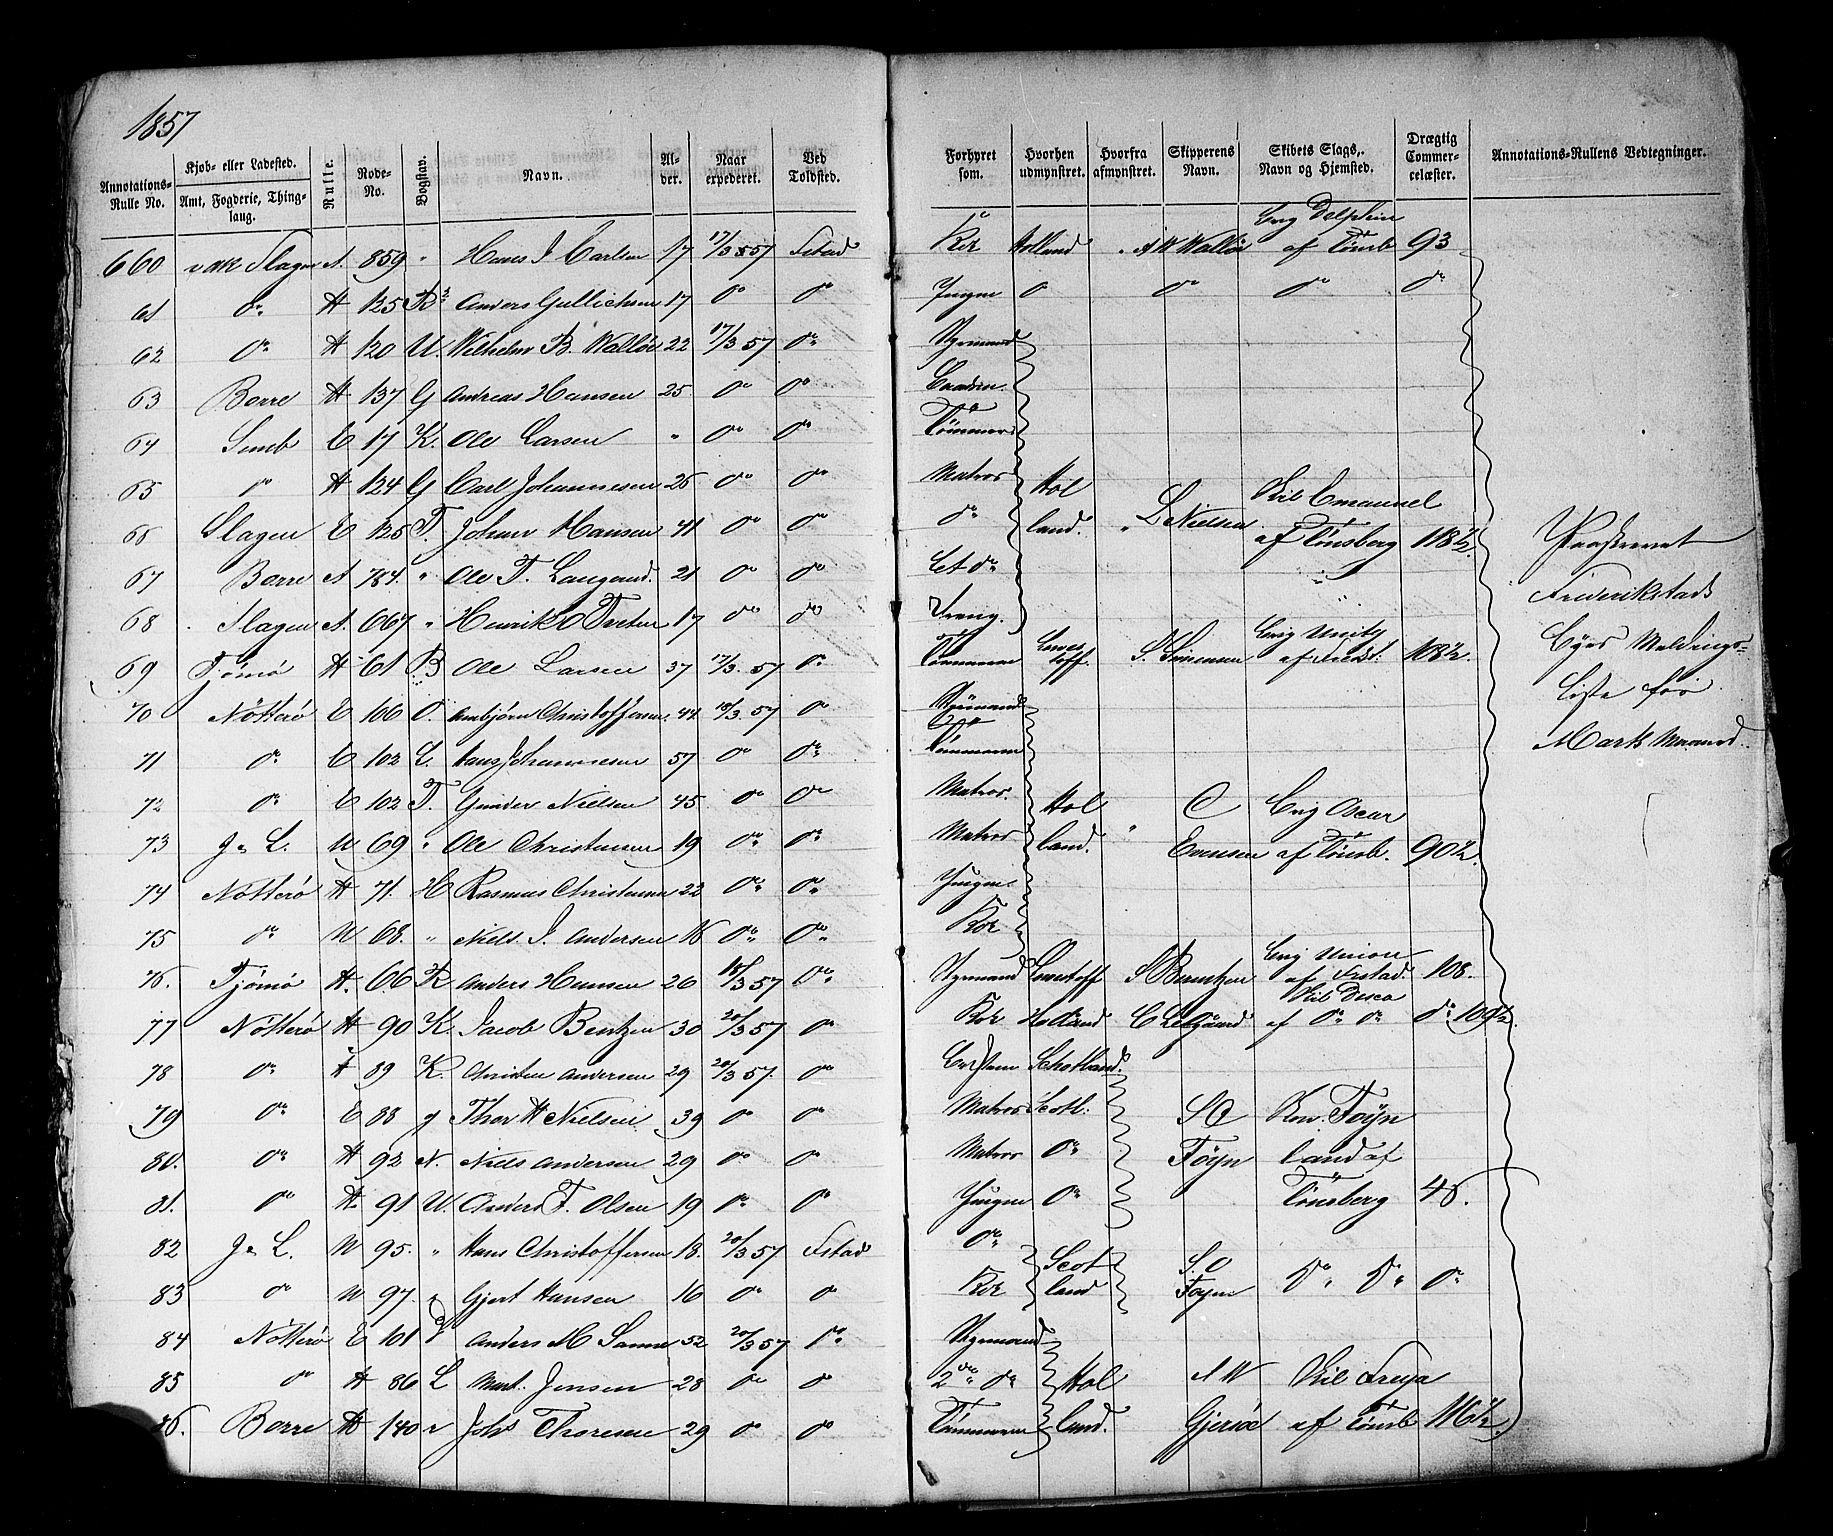 1857
Annotations-Rulle No. | Kjøb- eller Ladested. Amt, Fogderie, Thinglaug. | Rulle. | Rode-No. | Bogstav. | Navn. | Alder. | Naar erpederet. | Ved Toldsted. | Forhyret som. | Hvorhen udmynstret. | Hvorfra afmynstret. | Skipperens Navn. | Skibets Slags, Navn og Hjemsted. | Drægtig Commercelæster. | Annotations-Rullens Vedtegninger.
660 Slagen A. 859 " Hans J Carlsen 17 17/3 57 Fstad Kok Holland " A W Walløe Brig Delphin af Tønsb 93
61 do H 125 Anders Gullichsen 17 do do Jungm do do do do
62 do H 120 U. Wilhelm B. Walløe 22 17/3 57 do Styrmand
63 Borre H 137 G Andreas Hansen 25 do do
64 Semb E 17 K. Ole Larsen " do do Tømmerm
65 do H 124 G Carl Johannesen 26 do do Matros Hol
66 Slagen E 125 T. Johan Hansen 41 do do do land. " L Nielsen Skib Emanuel af Tønsberg 118½ Paaskrevet
67 Borre A 784. " Ole T. Laugaard. 21 do do Let do Frederikstads
68 Slagen A. 667 " Henrik O Tveten 17 do do Dreng. Byes Meldings-
69 Tjømø H 61 B Ole Larsen 37 17/3 57 do Tømmerm S. Simensen Brig Unity af Fredst. 108½ Liste for
70 Nøtterø E 106 O. Anbjørn Christoffersen 44. 18/3 57 do Styrmand Marts Maaned.
71 do E 102 L. Hans Johannesen 57 do do Tømmerm
72 do E 102 T. Gunder Nielsen 45 do do Matros. Hol C Brig Oscar
73 J. L. U 69 " Ole Christensen 19 do do Matros land. " Evensen af Tønsb. 90½
74 Nøtterø H 71. H Rasmus Christensen 22 do do Jungm
75 do U 68. " Niels J. Andersen 16 do do Kok
76. Tjømø H. 66 K Anders Hansen 26 18/3 57 do Styrmand S Berntzen Brig Union af Frstad. 108.
77 Nøtterø H 90 K Jacob Bentzen 30 20/3 57 do Kok Holland af do do do 109½
78 do 89 K. Christen Andersen 29 20/3 57. do Schotland.
79 do E 88 Thor H Nielsen 39 do do Matros Scotl. S O Føyn
80. do H 92 N. Niels Andersen 29 do do Matros do Føyn land af
81. do H 91 U. Anders F. Olsen 19 do do Jungm do Tønsberg 48.
82 J. L. U 95. " Hans Christoffersen 18. 20/3 57 Fstad do Scot S. O
83 do U 97. " Gjert Hansen 16 do do Kok land Føyn do do do
84 Nøtterø E 101 Anders M Sanne 52 20/3 57 do Styrmand
85 do H 86 L Mart. Jensen 28 do do 2den do Hol A W Skib Freya
86. Borre H 140 Johs Thoresen 29 do do Tømmerm land. Gjersøe af Tønsb 116½